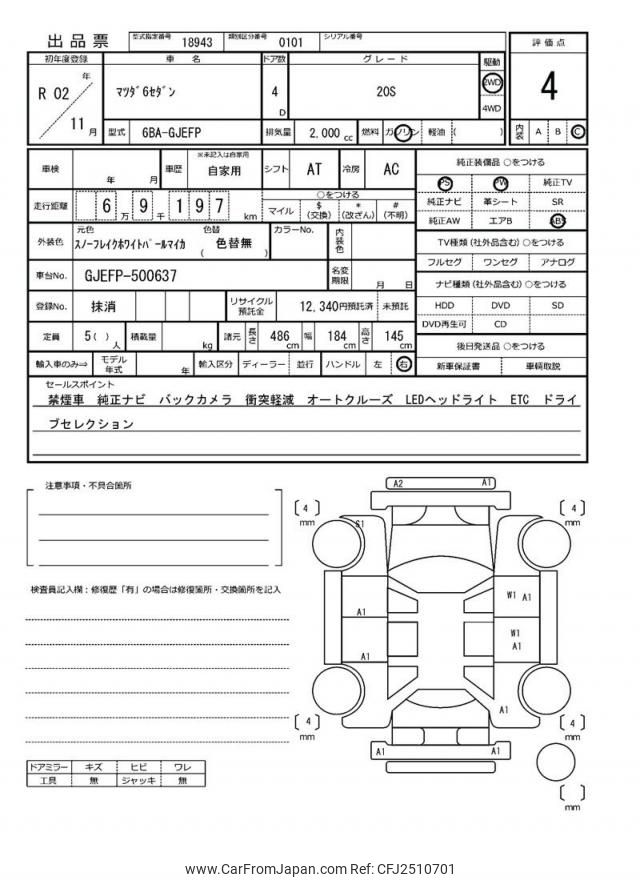 出品票 型式指定番号 18943 類別区分番号 0101 シリアル番号
評価点
4
内装 A B C
初年度登録 車名 ドア数 グレード 駆動
R 02 年 11 月
マツダ6セダン 4 D 20S 2WD 4WD
型式 6BA-GJEFP 排気量 2,000 cc 燃料 ガソリン 軽油 ( )
車検 年 月 車歴 ※未記入は自家用 自家用 シフト AT 冷房 AC
走行距離 6 万 9 千 1 9 7 km
○をつける
マイル $(交換) *(改ざん) #(不明)
外装色 元色 スノーフレイクホワイトパールマイカ 色替 ( 色替無 ) カラーNo. 内装色
車台No. GJEFP-500637 名変期限 月 日
登録No. 抹消 リサイクル預託金 12,340円預託済 未預託
定員 5( )人 積載量 kg 諸元 長さ 486 cm 幅 184 cm 高さ 145 cm
輸入車のみ⇒ モデル年式 年 輸入区分 ディーラー 並行 ハンドル 左 右
純正装備品 ○をつける
PS PW 純正TV
純正ナビ 革シート SR
純正AW エアB ABS
TV種類(社外品含む)○をつける
フルセグ ワンセグ アナログ
ナビ種類(社外品含む)○をつける
HDD DVD SD
DVD再生可 CD
後日発送品 ○をつける
新車保証書 車輌取説
セールスポイント
禁煙車 純正ナビ バックカメラ 衝突軽減 オートクルーズ LEDヘッドライト ETC ドライ
ブセレクション
注意事項・不具合箇所
検査員記入欄:修復歴「有」の場合は修復箇所・交換箇所を記入
ドアミラー キズ ヒビ ワレ
工具 無 ジャッキ 無
A2 A1
[ 4 ] mm
[ 4 ] mm
S1
A1
W1 A1
W1
A1
A1
A1
[ 4 ] mm
[ 4 ] mm
A1 A1
[ ] mm
www.CarFromJapan.com Ref: CFJ2510701